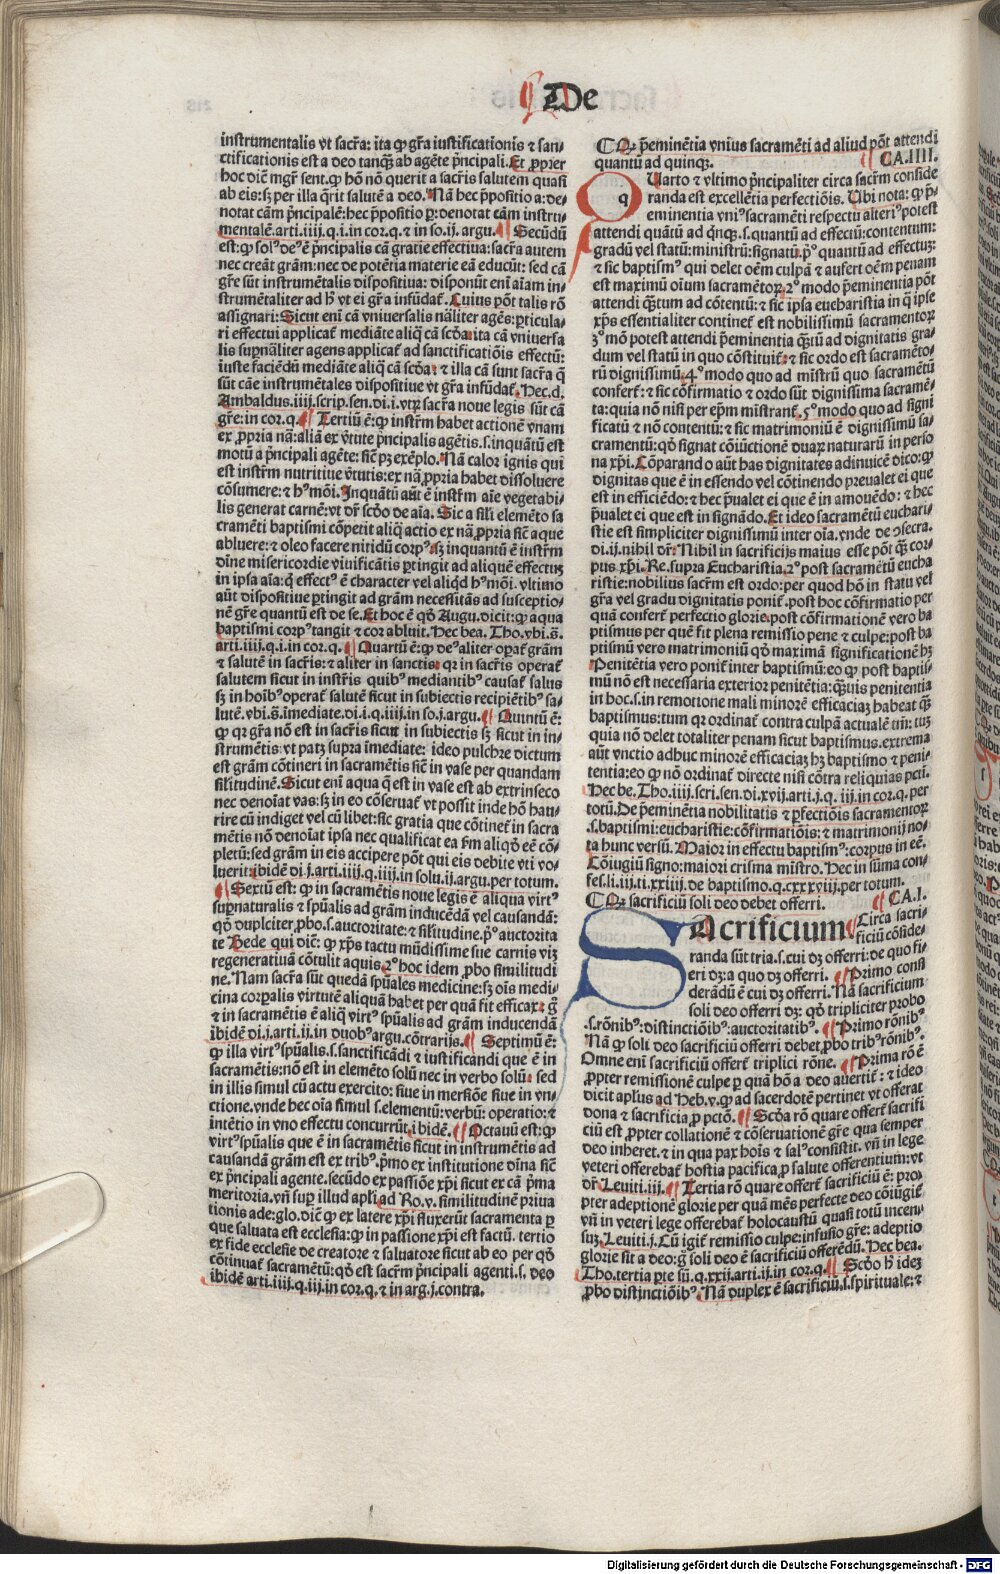 De
instrumentalis vt sacr̃a: ita ꝙ gr̃a iustificationis ⁊ san⸗
ctificationis est a deo tanqȝ ab agẽte pñcipali. Et ꝓpter
hoc diẽ mgr̃ sent. ꝙ hõ nõ querit a sacr̃is salutem quasi
ab eis: sȝ per illa q̃rit salutẽ a deo. Nã hec p̃positio a: de⸗
notat cãm pñcipalẽ: hec p̃positio ꝑ: denotat cãm instru⸗
mentalẽ. arti. iiij. q. i. in cor. q. ⁊ in so. ij. argu. Secũdũ
est: ꝙ solꝰ deꝰ ẽ pñcipalis cã gratie effectiua: sacr̃a autem
nec creãt grãm: nec de potẽtia materie eã educũt: sed cã
gr̃e sũt instrumentalis dispositiua: disponũt eni aĩam in⸗
strumẽtaliter ad hꝰ vt ei gr̃a infũdat̃. Cuius põt talis rõ
assignari: Sicut eni cã vniuersalis nãliter agẽs: ꝑticula⸗
ri effectui applicat̃ mediãte aliq̃ cã scďa: ita cã vniuersa
lis supnãliter agens applicat̃ ad sanctificatiõis effectũ:
iuste faciẽdũ mediãte aliq̃ cã scďa: ⁊ illa cã sunt sacr̃a q̃
sũt cãe instrumẽtales dispositiue vt gr̃a infũdat̃. Hec. d.
Ambaldus. iiij. scrip. sen. di. i. vtꝝ sacr̃a noue legis sũt cã
gr̃e: in cor. q. Tertiũ ẽ: ꝙ instr̃m habet actionẽ vnam
ex ꝓpria nã: aliã ex v̓tute pñcipalis agẽtis. s. inquãtũ est
motũ a pñcipali agẽte: sic̃ pȝ exẽplo. Nã calor ignis qui
est instr̃m nutritiue v̓tutis: ex nã ꝓpria habet dissoluere
cõsumere: ⁊ hꝰmõi. Inquãtũ aũt ẽ instr̃m aĩe vegetabi⸗
lis generat carnẽ: vt dr̃ scďo de aĩa. Sic a sili elemẽto sa
cramẽti baptismi cõpetit aliq̃ actio ex nã ꝓpria sic̃ aque
abluere: ⁊ oleo facere nitidũ corpꝰ: sȝ inquantũ ẽ instr̃m
diñe misericordie viuificãtis ꝑtingit ad aliquẽ effectuȝ
in ipsa aĩa: q̓ effectꝰ ẽ character vel aliqd hꝰmõi. vltimo
aũt dispositiue ꝑtingit ad grãm necessitãs ad susceptio⸗
nẽ gr̃e quantũ est de se. Et hoc ẽ qď Augu. dicit: ꝙ aqua
baptismi corpꝰ tangit ⁊ cor abluit. Hec bea. Tho. vbi. s̃.
arti. iiij. q. i. in cor. q. Quartũ ẽ: ꝙ deꝰ aliter opat̃ grãm
⁊ salutẽ in sacr̃is: ⁊ aliter in sanctis: qr in sacr̃is operat̃
salutem sicut in instr̃is quibꝰ mediantibꝰ causat̃ salus
sȝ in hoĩbꝰ operat̃ salutẽ sicut in subiectis recipiẽtibꝰ sa⸗
lutẽ. vbi. s̃. imediate. di. i. q. iiij. in so. j. argu. Quintũ ẽ:
ꝙ qr gr̃a nõ est in sacr̃is sicut in subiectis sȝ sicut in in⸗
strumẽtis: vt patȝ supra ĩmediate: ideo pulchre dictum
est grãm cõtineri in sacramẽtis sic̃ in vase per quandam
silitudinẽ. Sicut eni aqua q̃ est in vase est ab extrinseco
nec denoĩat vas: sȝ in eo cõseruat̃ vt possit inde hõ hau⸗
rire cũ indiget vel cũ libet: sic gratia que cõtinet̃ in sacra
mẽtis nõ denoĩat ipsa nec qualificat ea fm aliqď eẽ cõ⸗
pletũ: sed grãm in eis accipere põt qui eis debite vti vo⸗
luerit: ibidẽ di. j. arti. iiij. q. iiij. in solu. ij. argu. per totum.
Sextũ est: ꝙ in sacramẽtis noue legis ẽ aliqua virtꝰ
supnaturalis ⁊ spũalis ad grãm inducẽdã vel causandã:
qď dupłciter, ꝓbo. s. auctoritate: ⁊ silitudine. p̓ꝰ auctorita
te Bede qui dic̃: ꝙ xp̃s tactu mũdissime sue carnis viȝ
regeneratiuã cõtulit aquis. 2ꝰ hoc idem ꝓbo similitudi
ne. Nam sacr̃a sũt quedã spũales medicine: sȝ oĩs medi⸗
cina corpalis virtutẽ aliquã habet per quã fit efficax: g̃
⁊ in sacramẽtis ẽ aliq̃ virtꝰ spũalis ad grãm inducendã
ibidẽ di. j. arti. ij. in duobꝰ argu. cõtrarijs. Septimũ ẽ:
ꝙ illa virtꝰ spũalis. s. sanctificãdi ⁊ iustificandi que ẽ in
sacramẽtis: nõ est in elemẽto solũ nec in verbo solũ: sed
in illis simul cũ actu exercito: siue in mersiõe siue in vn⸗
ctione. vnde hec oĩa simul s. elementũ: verbũ: operatio: ⁊
intẽtio in vno effectu concurrũt. ibidẽ. Octauũ est: ꝙ
virtꝰ spũalis que ẽ in sacramẽtis sicut in instrumẽtis ad
causandã grãm est ex tribꝰ. p̓mo ex institutione diña sic̃
ex pñcipali agente. secũdo ex passiõe xp̃i sicut ex cã p̃ma
meritoria. vñ sup illud apli ad Ro. v. similitudinẽ priua
tionis ade: glo. dic̃ ꝙ ex latere xp̃i fluxerũt sacramenta ꝑ
que saluata est ecclesia: ꝙ in passione xp̃i est factũ. tertio
ex fide ecclesie de creatore ⁊ saluatore sicut ab eo per qď
cõtinuat̃ sacramẽtũ: qď est sacr̃m pñcipali agenti. s. deo
ibidẽ arti. iiij. q. iij. in cor. q. ⁊ in arg. j. contra.
Qȝ p̃eminẽtia vnius sacramẽti ad aliud põt attendi
quantũ ad quinqȝ. CA. IIII.
Quarto ⁊ vltimo pñcipaliter circa sacr̃m conside
randa est excellẽtia perfectiõis. Vbi nota: ꝙ p̃⸗
eminentia vniꝰ sacramẽti respectu alteriꝰ potest
attendi quãtũ ad q̓nqȝ. s. quantũ ad effectũ: contentum:
gradũ vel statũ: ministrũ: signatũ. p̓ꝰ quantũ ad effectuȝ:
⁊ sic baptismꝰ qui delet oẽm culpã ⁊ aufert oẽm penam
est maximũ oĩum sacramẽtoꝝ. 2ꝰ modo p̃eminentia põt
attendi qȝtum ad cõtentũ: ⁊ sic ipsa eucharistia in q̃ ipse
xp̃s essentialiter continet̃ est nobilissimũ sacramentoꝝ
3ꝰ mõ potest attendi p̃eminentia qȝtũ ad dignitatis gra⸗
dum vel statũ in quo cõstituit̃: ⁊ sic ordo est sacramẽto⸗
rũ dignissimũ. 4ꝰ modo quo ad ministrũ quo sacramẽtũ
confert̃: ⁊ sic cõfirmatio ⁊ ordo sũt dignissima sacramẽ⸗
ta: quia nõ nisi per ep̃m ministrant̃. 5ꝰ modo quo ad signi
ficatũ ⁊ nõ contentũ: ⁊ sic matrimoniũ ẽ dignissimũ sa⸗
cramentũ: qď signat cõiũctionẽ duaꝝ naturarũ in perso
na xp̃i. Cõparando aũt has dignitates adinuicẽ dico: ꝙ
dignitas que ẽ in essendo vel cõtinendo preualet ei que
est in efficiẽdo: ⁊ hec p̃ualet ei que ẽ in amouẽdo: ⁊ hec
p̃ualet ei que est in signãdo. Et ideo sacramẽtũ euchari⸗
stie est simpliciter dignissimũ inter oĩa. vnde de ꝯsecra.
di. ij. nihil dr̃: Nihil in sacrificijs maius esse põt qȝ cor⸗
pus xp̃i. Re. supra Eucharistia. 2ꝰ post sacramẽtũ eucha
ristie: nobilius sacr̃m est ordo: per quod hõ in statu vel
gr̃a vel gradu dignitatis ponit̃. post hoc cõfirmatio per
quã confert̃ perfectio glorie. post cõfirmationẽ vero ba
ptismus per quẽ fit plena remissio pene ⁊ culpe: post ba
ptismũ vero matrimoniũ qď maximã significationẽ hȝ
Penitẽtia vero ponit̃ inter baptismũ: eo ꝙ post baptis⸗
mũ nõ est necessaria exterior penitẽtia: qȝuis penitentia
in hoc. s. in remotione mali minorẽ efficaciaȝ habeat qȝ
baptismus: tum qr ordinat̃ contra culpã actualẽ tm̃: tuȝ
quia nõ delet totaliter penam sicut baptismus. extrema
aũt vnctio adhuc minorẽ efficaciaȝ hȝ baptismo ⁊ peni⸗
tentia: eo ꝙ nõ ordinat̃ directe nisi cõtra reliquias pcti.
Hec be. Tho. iiij. scri. sen. di. xvij. arti. j. q. iij. in cor. q. per
totũ. De p̃eminẽtia nobilitatis ⁊ ꝑfectiõis sacramentoꝝ
.s. baptismi: eucharistie: cõfirmatiõis: ⁊ matrimonij no⸗
ta hunc versũ. Maior in effectu baptismꝰ: corpus in eẽ.
Cõiugiũ signo: maiori crisma ministro. Hec in sũma con⸗
fes. li. iij. ti. xxiiij. de baptismo. q. cxxxviij. per totum.
Qȝ sacrificiũ soli deo debet offerri. CA. I.
Sacrificium. Circa sacri⸗
ficiũ cõside⸗
randa sũt tria. s. cui dȝ offerri: de quo fi⸗
eri dȝ: a quo dȝ offerri. Primo consi
derãdũ ẽ cui dȝ offerri. Nã sacrificium
soli deo offerri dȝ: qď tripliciter probo
.s. rõnibꝰ: distinctiõibꝰ: auctoritatibꝰ. Primo rõnibꝰ.
Nã ꝙ soli deo sacrificiũ offerri debet, ꝓbo tribꝰ rõnibꝰ.
Omne eni sacrificiũ offert̃ triplici rõne. Prima rõ ẽ
ꝓpter remissionẽ culpe ꝑ quã hõ a deo auertit̃: ⁊ ideo
dicit aplus ad Heb. v. ꝙ ad sacerdotẽ pertinet vt offerat
dona ⁊ sacrificia ꝓ pctõ. Scďa rõ quare offert̃ sacrifi
ciũ est ꝓpter collationẽ ⁊ cõseruationẽ gr̃e qua semper
deo inheret. ⁊ in qua pax hoĩs ⁊ salꝰ consistit. vñ in lege
veteri offerebat̃ hostia pacifica, ꝓ salute offerentium: vt
dr̃ Leuiti. iij. Tertia rõ quare offert̃ sacrificiũ ẽ: pro⸗
pter adeptionẽ glorie per quã mẽs perfecte deo cõiũgit̃
vñ in veteri lege offerebat̃ holocaustũ quasi totũ incen⸗
suȝ. Leuiti. j. Cũ igit̃ remissio culpe: infusio gr̃e: adeptio
glorie sit a deo: g̃ soli deo ẽ sacrificiũ offerẽdũ. Hec bea.
Tho. tertia pte sũ. q. xxij. arti. ij. in cor. q. Scďo hꝰ ideȝ
ꝓbo distinctiõibꝰ. Nã duplex ẽ sacrificiũ. s. spirituale: ⁊
Digitalisierung gefördert durch die Deutsche Forschungsgemeinschaft - DFG